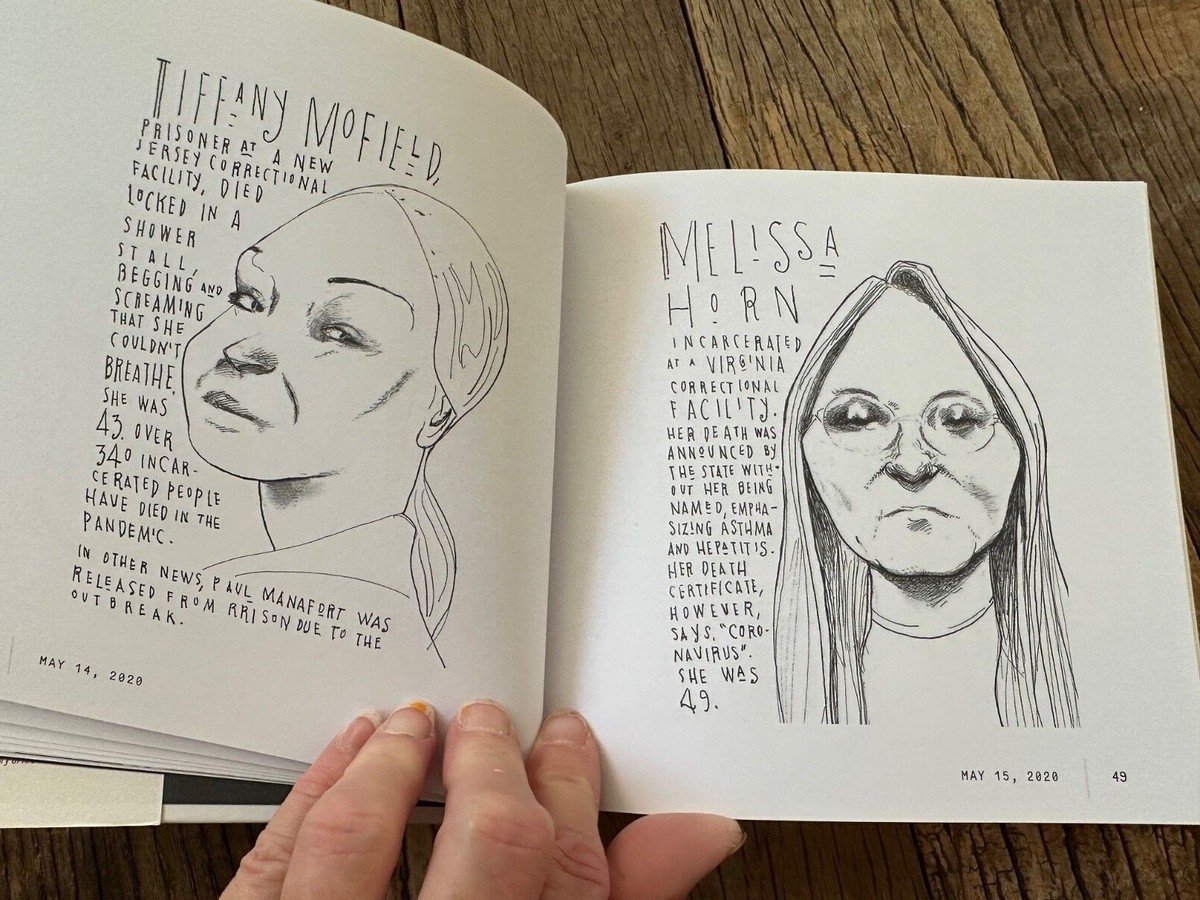 TIFFANY MOFIELD,
PRISONER AT A NEW
JERSEY CORRECTIONAL
FACILITY, DIED
LOCKED IN A
SHOWER
STALL,
BEGGING AND
SCREAMING
THAT SHE
COULDN'T
BREATHE.
SHE WAS
43. OVER
340 INCAR-
CERATED PEOPLE
HAVE DIED IN THE
PANDEMIC.
IN OTHER NEWS, PAUL MANAFORT WAS
RELEASED FROM RRISON DUE TO THE
OUTBREAK.
MAY 14, 2020
MELISSA
HORN
INCARCERATED
AT A VIRGINIA
CORRECTIONAL
FACILITY.
HER DEATH WAS
ANNOUNCED BY
THE STATE WITH-
OUT HER BEING
NAMED, EMPHA-
SIZING ASTHMA
AND HEPATITIS.
HER DEATH
CERTIFICATE,
HOWEVER,
SAYS, "CORO-
NAVIRUS".
SHE WAS
49.
MAY 15, 2020
49